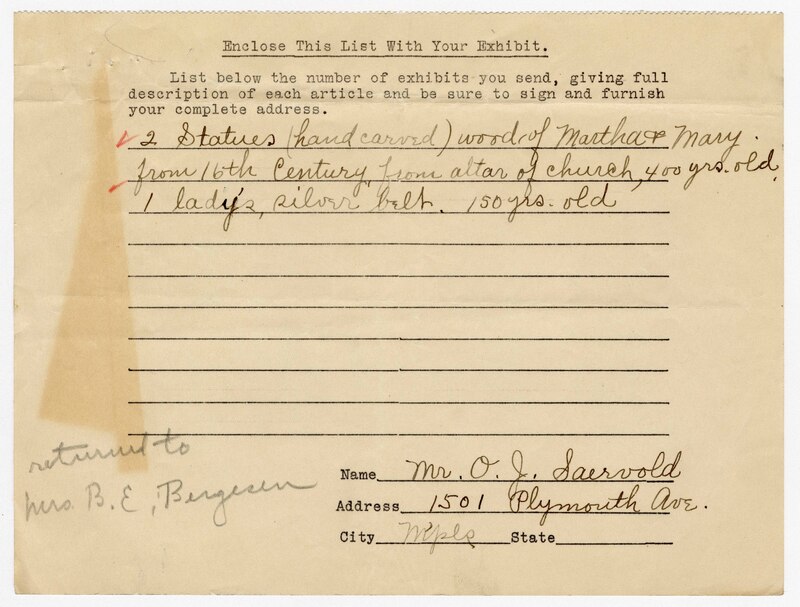 Enclose This List With Your Exhibit.
List below the number of exhibits you send, giving full
description of each article and be sure to sign and furnish
your complete address.
2 Statues (hand carved) wood of Martha & Mary.
from 16th Century, from altar of church, 400 yrs. old.
1 lady's, silver belt. 150 yrs. old
returned to
Mrs. B. E. Bergesen
Name Mr. O. J. Saervold
Address 1501 Plymouth Ave.
City Mpls State